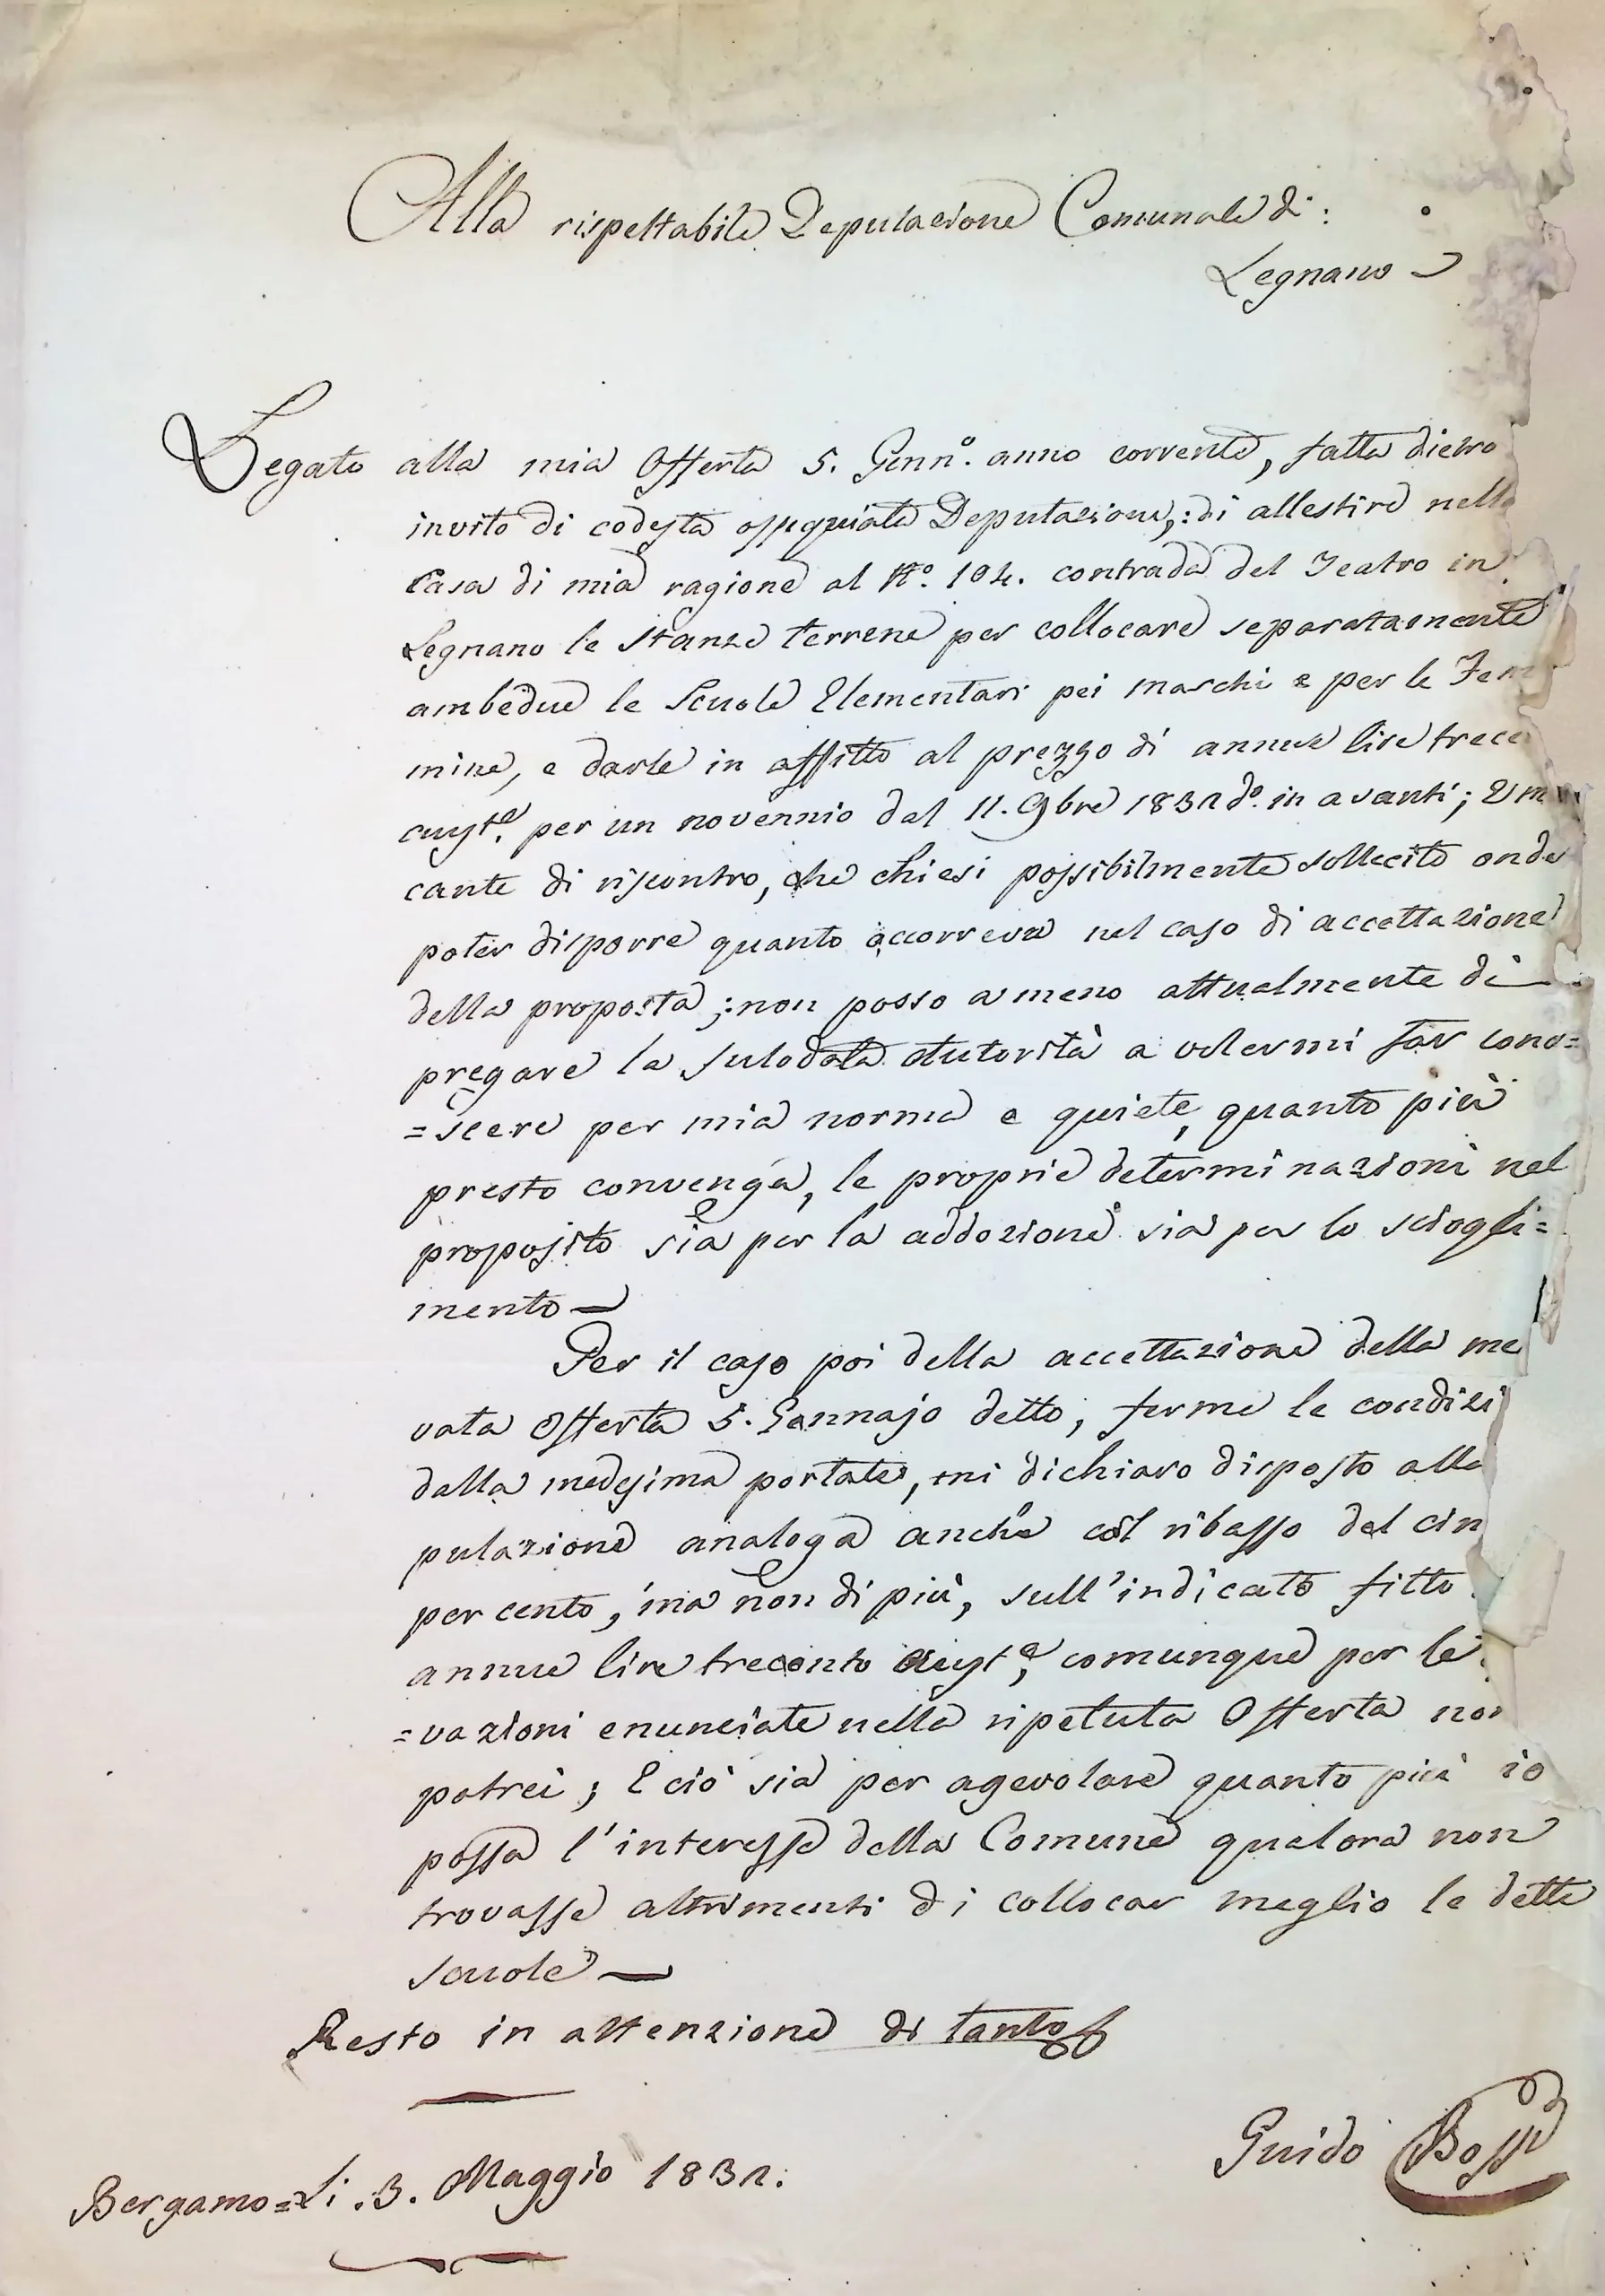 Alla rispettabile Deputazione Comunale di:
Legnano
Legato alla mia Offerta 5. Genn°. anno corrente, fatta dietro
invito di codesta ossequiata Deputazione,: di allestire nella
Casa di mia ragione al N°. 104. contrada del Teatro in
Legnano le Stanze terrene per collocare separatamente
ambedue le Scuole Elementari pei maschi e per le Fem
mine, e darle in affitto al prezzo di annue lire trece
aust.e per un novennio dal 11. 9bre 1832 d°. in avanti; E man
cante di riscontro, che chiesi possibilmente sollecito onde
poter disporre quanto occorreva nel caso di accettazione
della proposta;: non posso a meno attualmente di
pregare la sulodata Autorità a volermi far cono=
=scere per mia norma e quiete, quanto più
presto convenga, le proprie determinazioni nel
proposito sia per la addozione sia per lo sciogli=
mento
Per il caso poi della accettazione della me
vata Offerta 5. Gennajo detto, ferme le condizi
dalla medesima portate, mi dichiaro disposto alla
pulazione analoga anche col ribasso del cin
per cento, ma non di più, sull'indicato fitto
annue lire trecento aust.e, comunque per le
=vazioni enunciate nella ripetuta Offerta non
potrei; E ciò sia per agevolare quanto più io
possa l'interesse della Comune qualora non
trovasse altrimenti di collocar meglio le dette
scuole
Resto in attenzione di tanto
Guido Bossi
Bergamo = Li. 3. Maggio 1832.